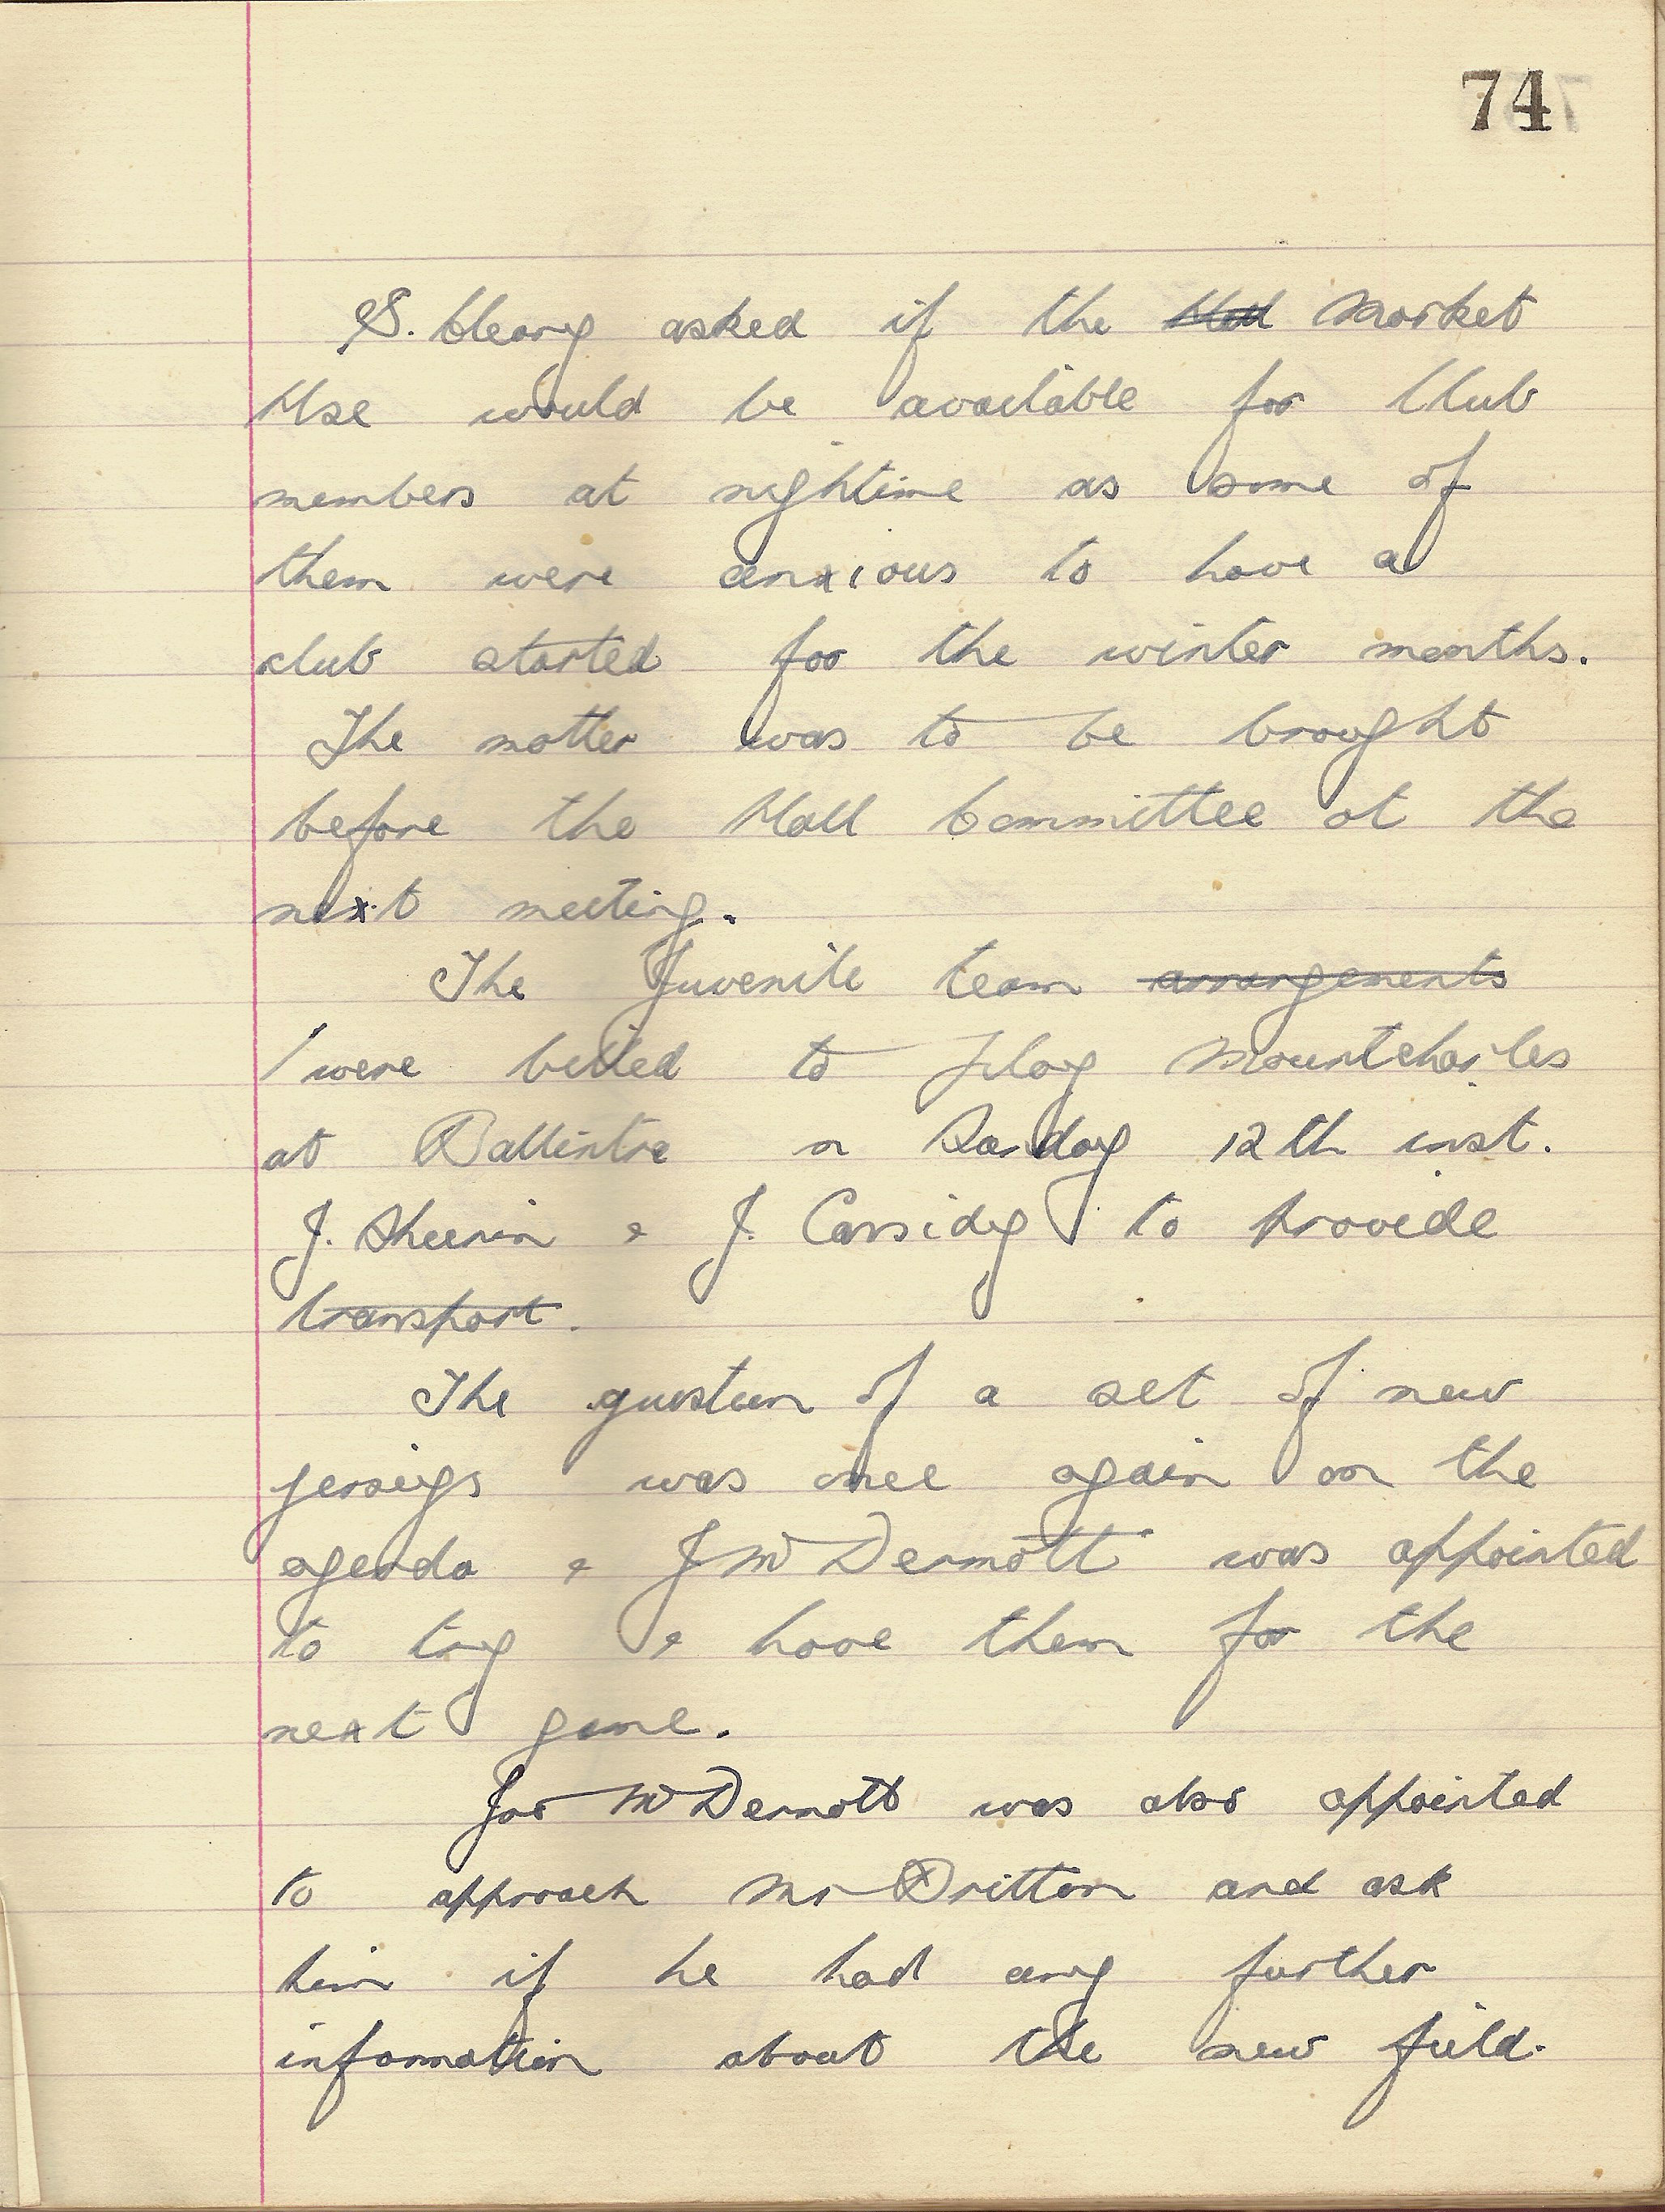 74
S. Cleary asked if the Market
Hse would be available for Club
members at nightime as some of
them were anxious to have a
club started for the winter months.
The matter was to be brought
before the Hall Committee at the
next meeting.
The Juvenile team arrangements
/ were billed to play Mountcharles
at Ballintra on Sunday 12th inst.
J. Sheerin & J. Cassidy to provide
transport.
The question of a set of new
jerseys was once again on the
agenda & J McDermott was appointed
to try & have them for the
next game.
Joe McDermott was also appointed
to approach Mr Britton and ask
him if he had any further
information about the new field.